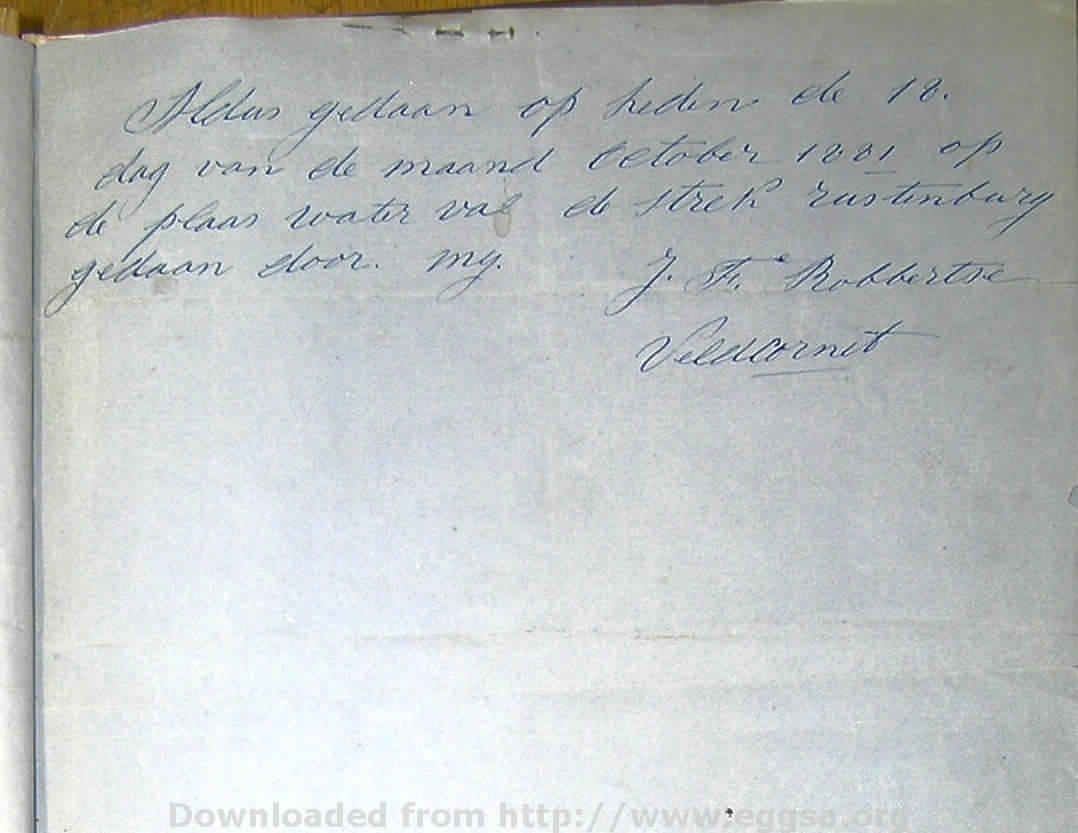 Aldus gedaan op heden de 18.
dag van de maand October 1881 op
de plaas water val de strek rustenburg
gedaan door. my. J. F. Robbertse
Veldcornet
Downloaded from http://www.eggsa.org